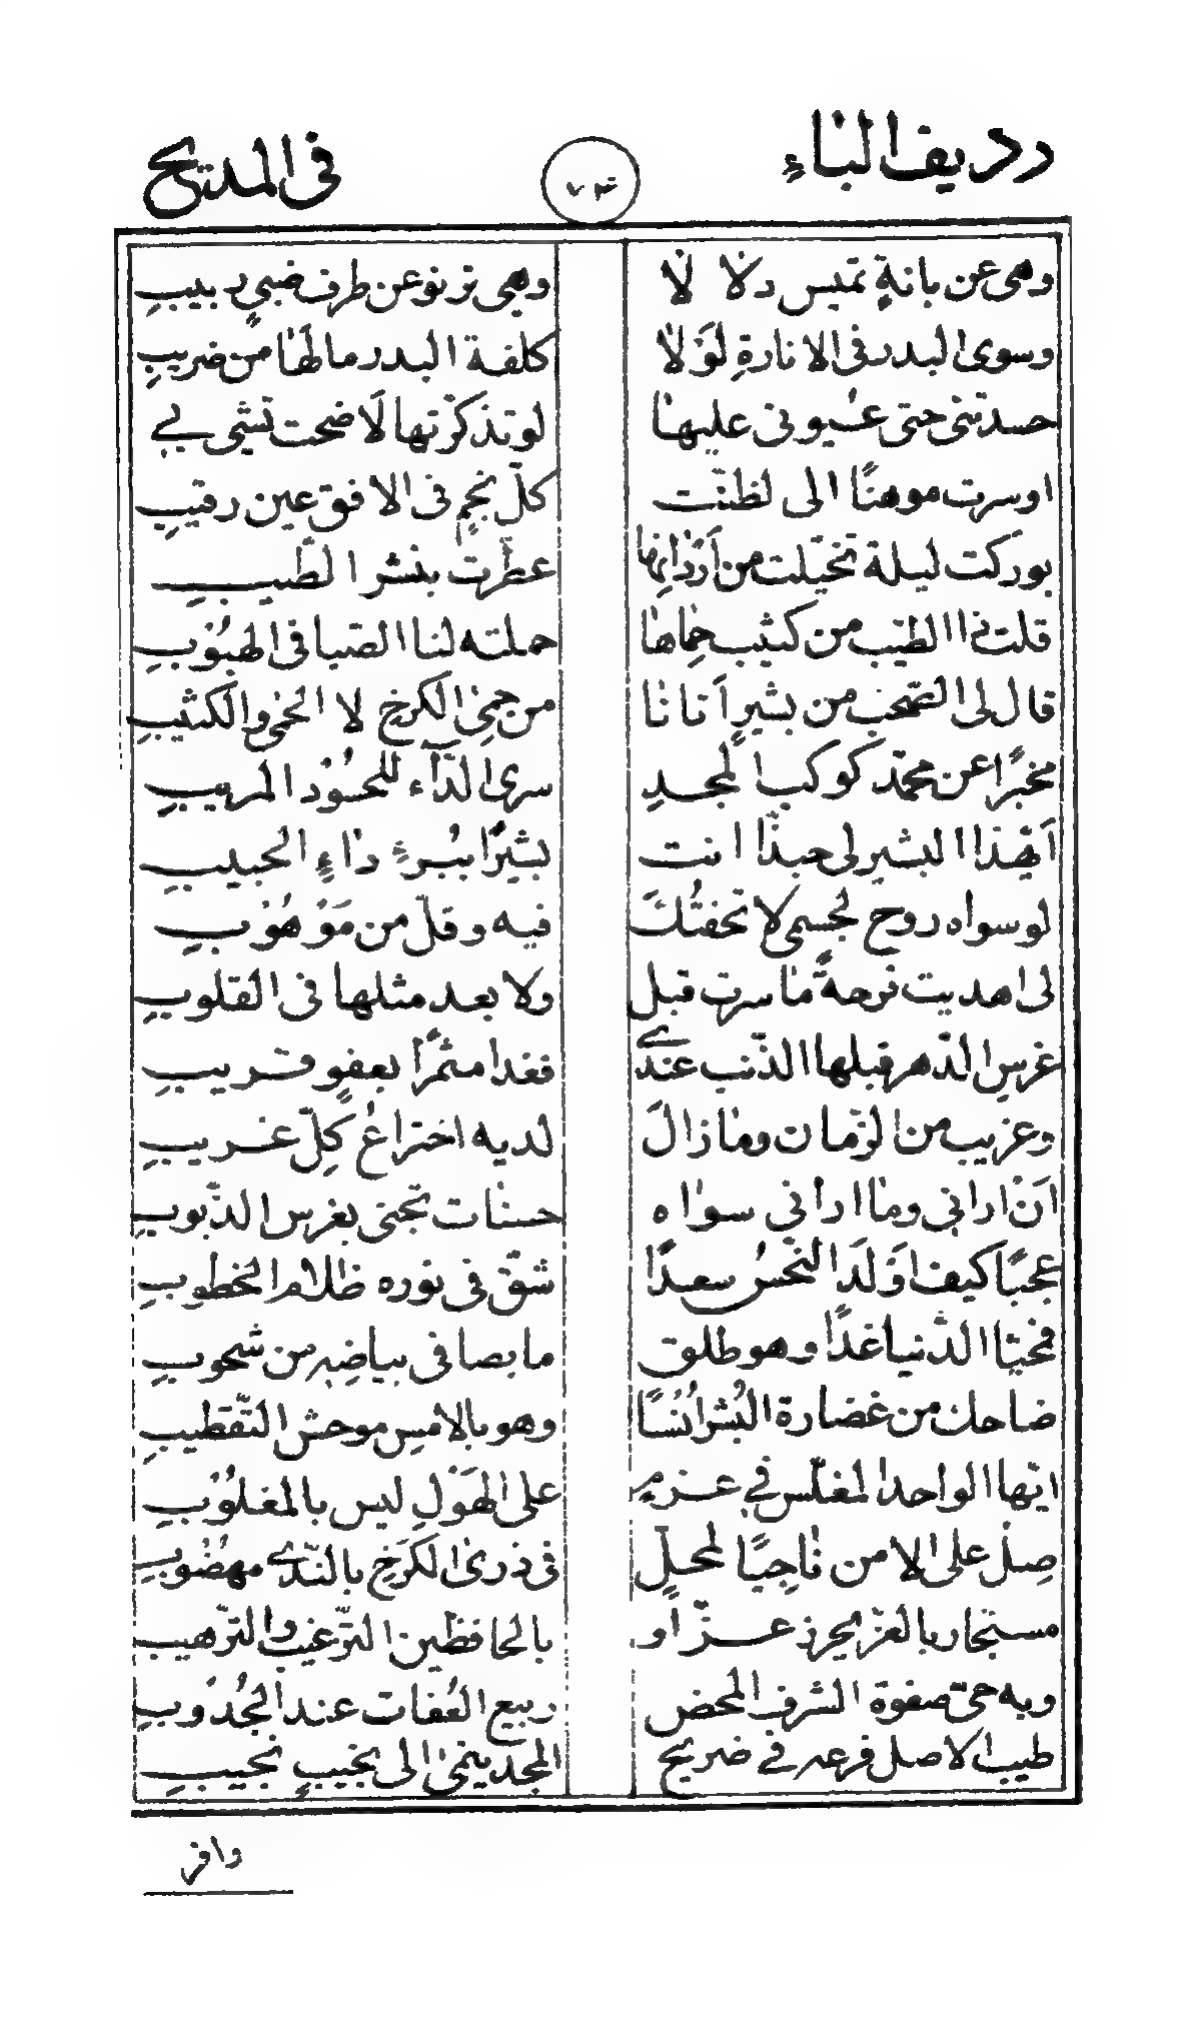 رديف الباء ٧٣ فى المديح
وهى عن بانةٍ تميس دلالا وهى ترنو عن طرف ضبىٍ ربيبِ
وسوى البدر فى الانارةِ لَوْلا كلفة البدر ما لها من ضريبِ
حسدتنى حتى عيونى عليها لو تذكرتها لَاضحت تشى بى
اوسرت موهنًا الى لظنّت كلّ نجمٍ فى الافق عين رقيبِ
بوركت ليلة تخيّلت من اَرْدانها عطّرت بنشر الطّيبِ
قلت يا الطيّب من كثيب حِماها حملته لنا الصّبا فى الهبُوْبِ
قال لى الصّحب من بشيرٍ اَتانا من حِمىٰ الكرخ لا الحمٰى والكثيبِ
مخبرًا عن محمّد كوكب المجدِ سرىٰ الدّاۤء للحسُوْد المريبِ
اَيّهذا البشير لى حبذّا انت بشيرًا ببُرءِ داءِ الحبيبِ
لو سواه روح لجسمى لا تحفتُكَ فيه وقلّ من مَوْهُوْبِ
لى اهديت فرحةً ما سرت قبل ولا بعد مثلها فى القلوبِ
غرس الدّهر قبلها الذّنب عندى فغدا مثمرًا بعفوٍ قريبِ
وعزيب من الزمان وما زالَ لديه اختراعُ كلِّ غريبِ
انْ ارانى وما ارانى سواه حسنات تجنى بغرس الذّنوبِ
عجبًا كيف اوَلَدَ النّحسُ سعدًا شقّ فى نوره ظلام الخطوبِ
فمحيّا الدّنيا غدًا وهو طلق ما بصا فى بياضِهِ من شحوبِ
ضاحك من غضارة البُشر اُنسًا وهو بالامسِ موحش التّقطيبِ
ايّها الواحد المغلّس فى عزمٍ على الهَوْلِ ليس بالمغلُوْبِ
صِلْ على الامن ناجِيًا لمحلٍ فى ذرىٰ الكَرْخِ بالنّدى مهضُوبِ
مستجار بالعزّ يحرز عزّا او بالحافظين الترّغيب والترّهيب
وبه حىّ صفوة الشرف المحض ربيع العُفات عند الجُدُوبِ
طيب الاصل فرعه فى ضريح المجد ينمىٰ الى نجيبٍ نجيبِ
وافر